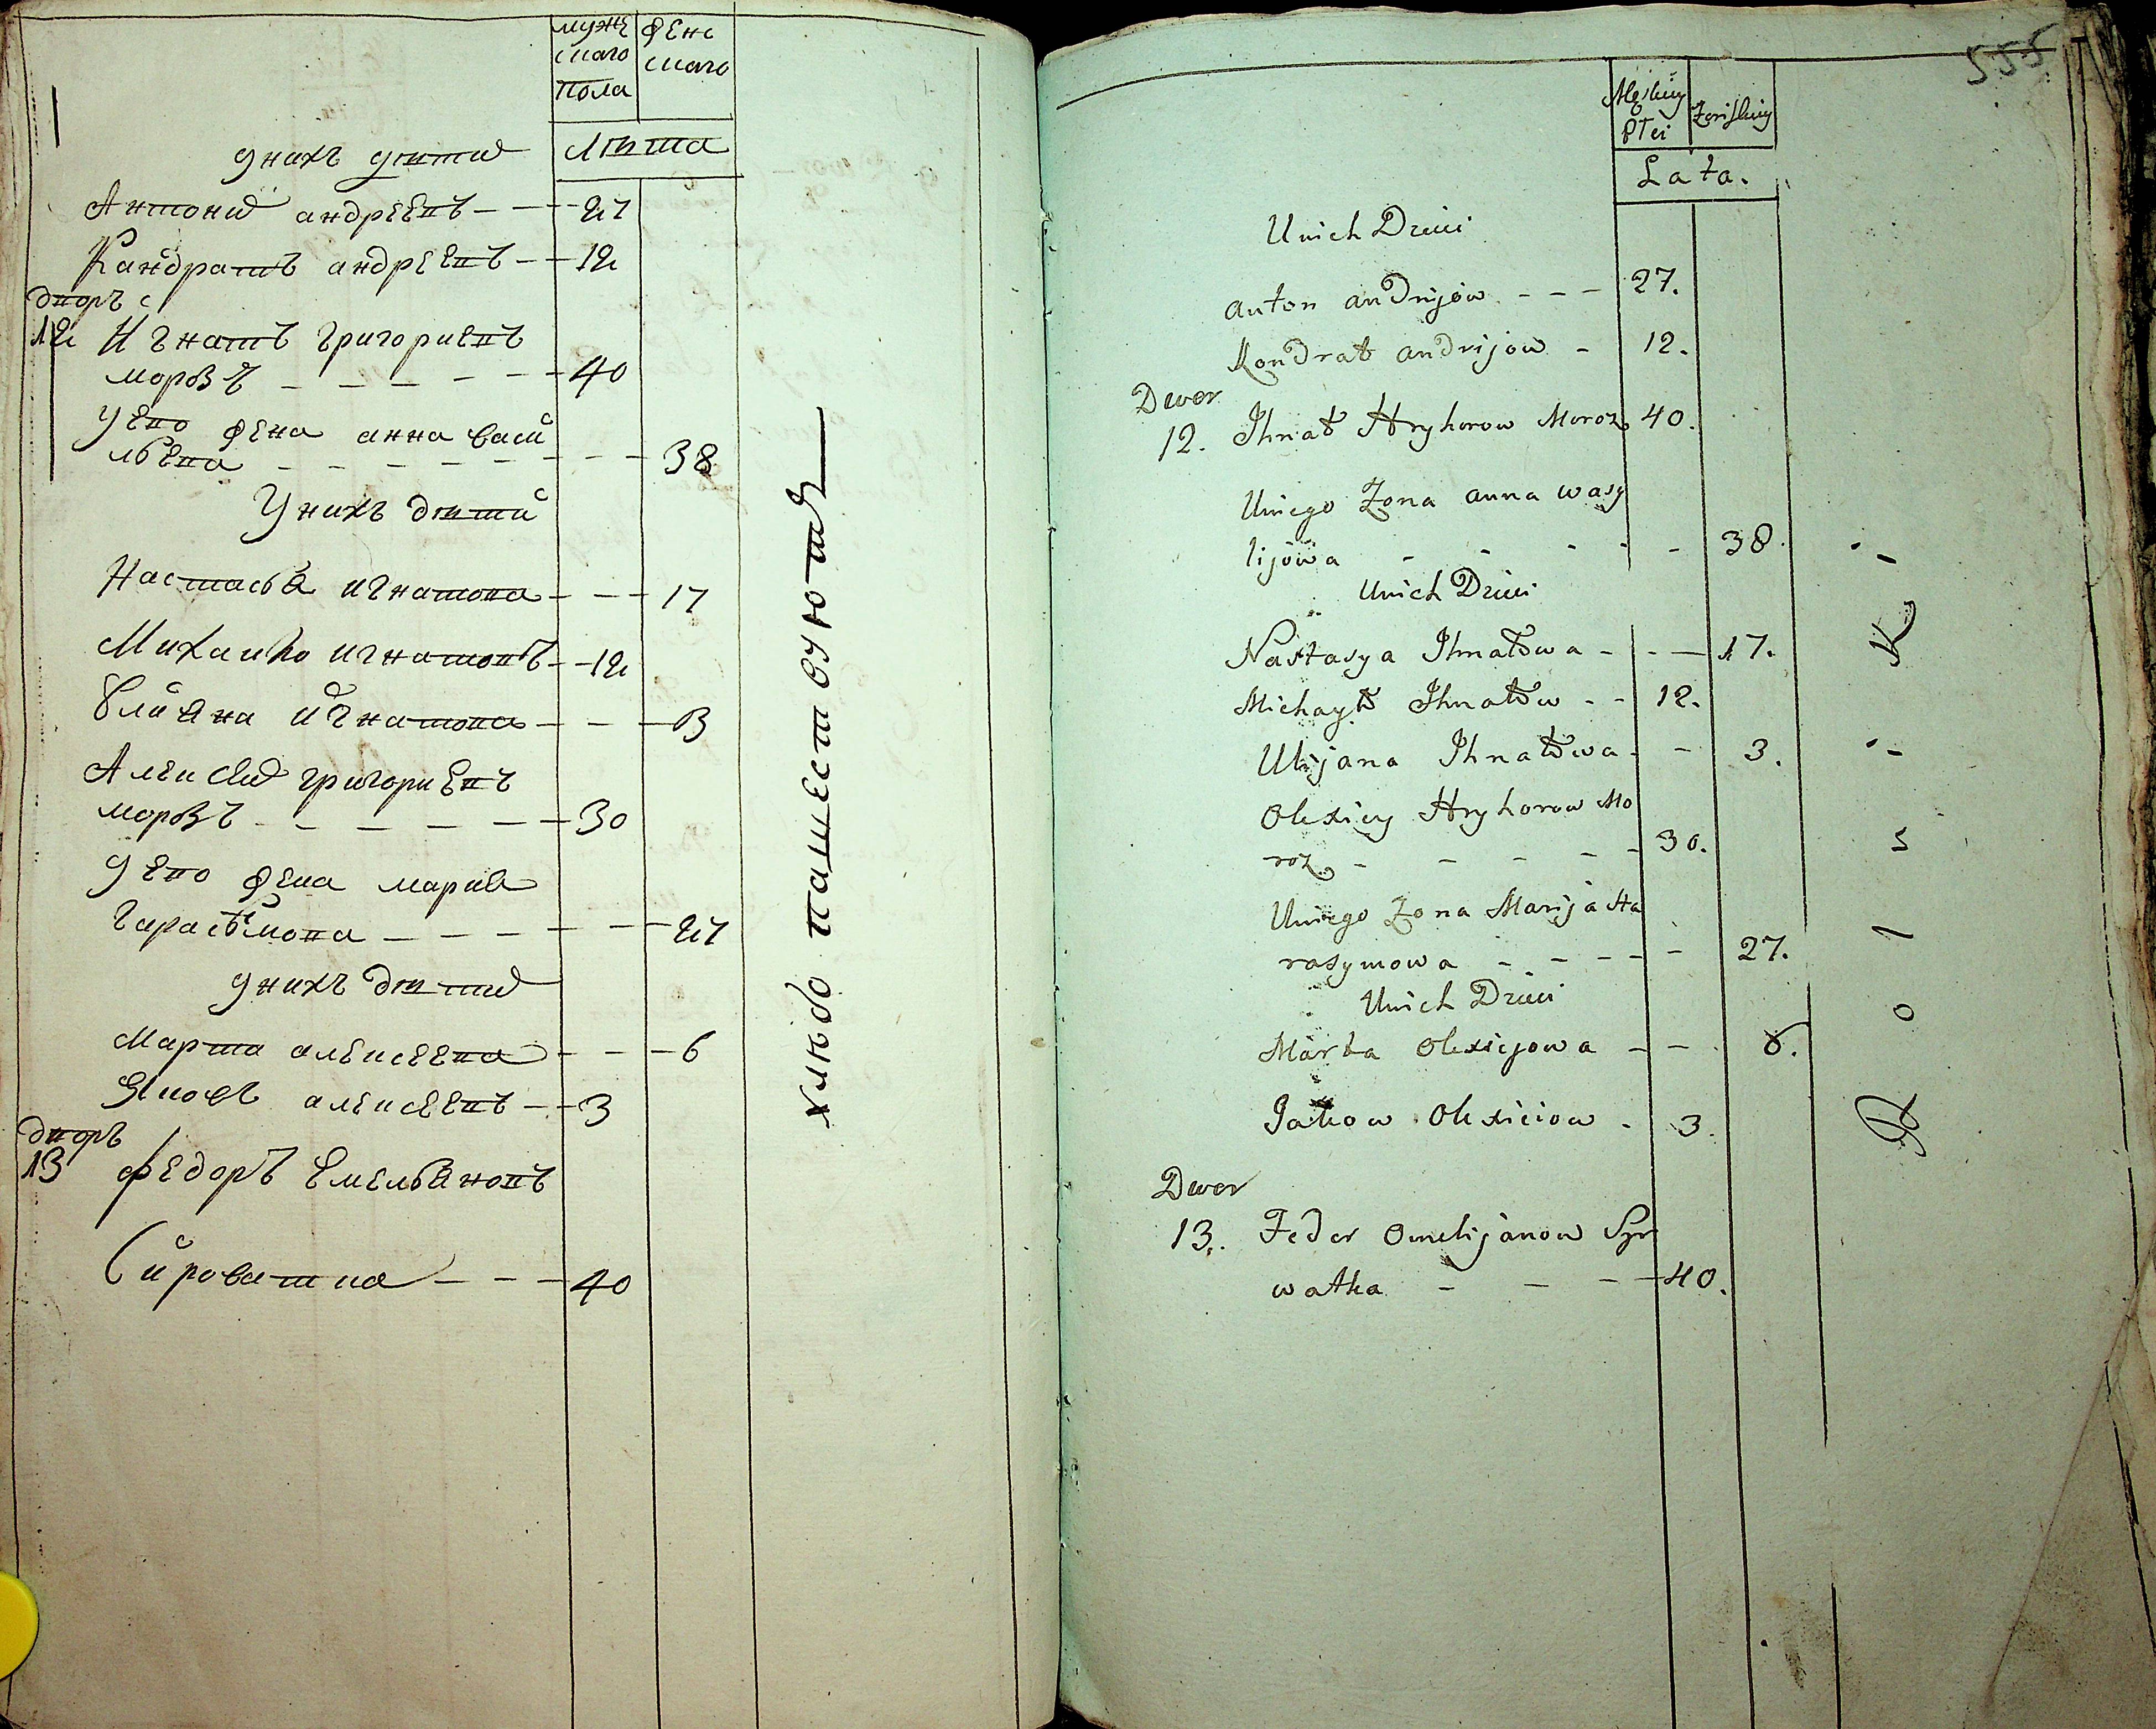 мужс
скаго
пола
женс
скаго
лѣта
у нихъ дѣти
Антони андреевъ - - - 27
Кандратъ андреевъ - - 12
дворъ
12 Игнатъ григориевъ
морозъ - - - - - 40
У ево жена анна васи
льева - - - - - - - - 38
У нихъ дѣти
Настасья игнатова - - - 17
Михаило игнатовъ - - 12
Улияна игнатова - - - 3
Алексей григориевъ
морозъ - - - - - - 30
У ево жена мария
гарасимова - - - - - - 27
у нихъ дѣти
Марта алексеева - - - 6
Яковъ алексеевъ - - 3
дворъ
13 Федоръ Емельяновъ
Сироватка - - - 40
хлѣбопашествуютъ
555
Męskiey
płci
Żeńskiey
Lata.
U nich Dzieci
Anton Andrijow - - - 27.
Kondrat Andrijow - 12.
Dwor
12. Ihnat Hryhorow Moroz 40.
U niego Żona Anna Wasy
lijowa - - - - - 38.
U nich Dzieci
Nastasya Ihnatowa - - - 17.
Michayło Ihnatow - - 12.
Ulijana Ihnatowa - - 3.
Olexiey Hryhorow Mo
roz - - - - - 30.
U niego Żona Marija Ha
rasymowa - - - - - 27.
U nich Dzieci
Marta Olexiejowa - - 6.
Jakow Olexieiow - 3.
Dwor
13. Fedor Omelijanow Syr
watka - - - - 40.
Rols-K-